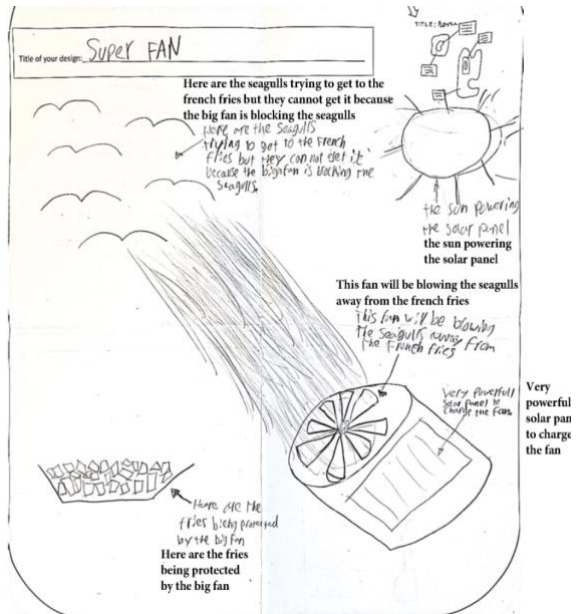 TITLE:
Title of your design: SUPER FAN
Here are the seagulls trying to get to the
french fries but they cannot get it because
the big fan is blocking the seagulls
Here are the Seagulls
trying to get to the French
fries but they can not get it
because the big fan is blocking the
Seagulls.
the sun powering
the solar panel
the sun powering
the solar panel
This fan will be blowing the seagulls
away from the french fries
This fan will be blowing
the Seagulls away from
the French fries
Very powerfull
solar panel to
charge the fan.
Very
powerful
solar pan
to charge
the fan
Here are the
fries being protected
by the big fan
Here are the fries
being protected
by the big fan